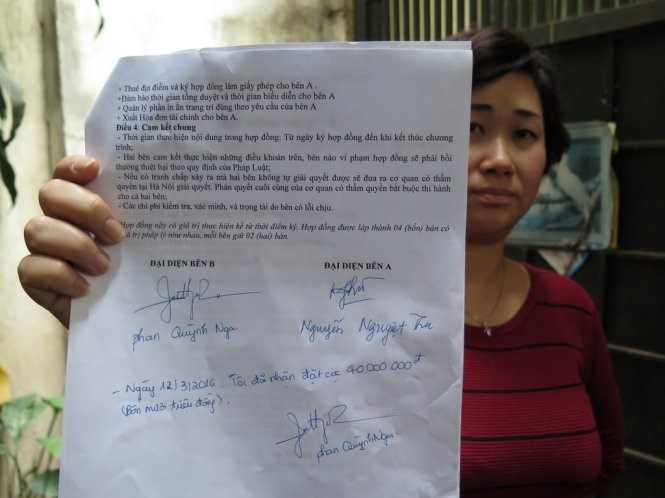 + Thuê địa điểm và ký hợp đồng làm giấy phép cho bên A .
+Đảm bảo thời gian tổng duyệt và thời gian biểu diễn cho bên A
+ Quản lý phần in ấn trang trí đúng theo yêu cầu của bên A
+ Xuất Hóa đơn tài chính cho bên A.
Điều 4: Cam kết chung
- Thời gian thực hiện nội dung trong hợp đồng: Từ ngày ký hợp đồng đến khi kết thúc chương
trình;
- Hai bên cam kết thực hiện những điều khoản trên, bên nào vi phạm hợp đồng sẽ phải bồi
thường thiệt hại theo quy định của Pháp Luật;
- Nếu có tranh chấp xảy ra mà hai bên không tự giải quyết được sẽ đưa ra cơ quan có thẩm
quyền tại Hà Nội giải quyết. Phán quyết cuối cùng của cơ quan có thẩm quyền bắt buộc thi hành
cho cả hai bên;
- Các chi phí kiểm tra, xác minh, và trọng tài do bên có lỗi chịu.
Hợp đồng này có giá trị thực hiện kể từ thời điểm ký. Hợp đồng được lập thành 04 (bốn) bản có
trị pháp lý như nhau, mỗi bên giữ 02 (hai) bản.
ĐẠI DIỆN BÊN B ĐẠI DIỆN BÊN A
phan Quỳnh Nga. Nguyễn Nguyệt Thu
- Ngày 12/3/2016. Tôi đã nhận đặt cọc 40.000.000đ
(Bốn mươi triệu đồng).
phan Quỳnh Nga